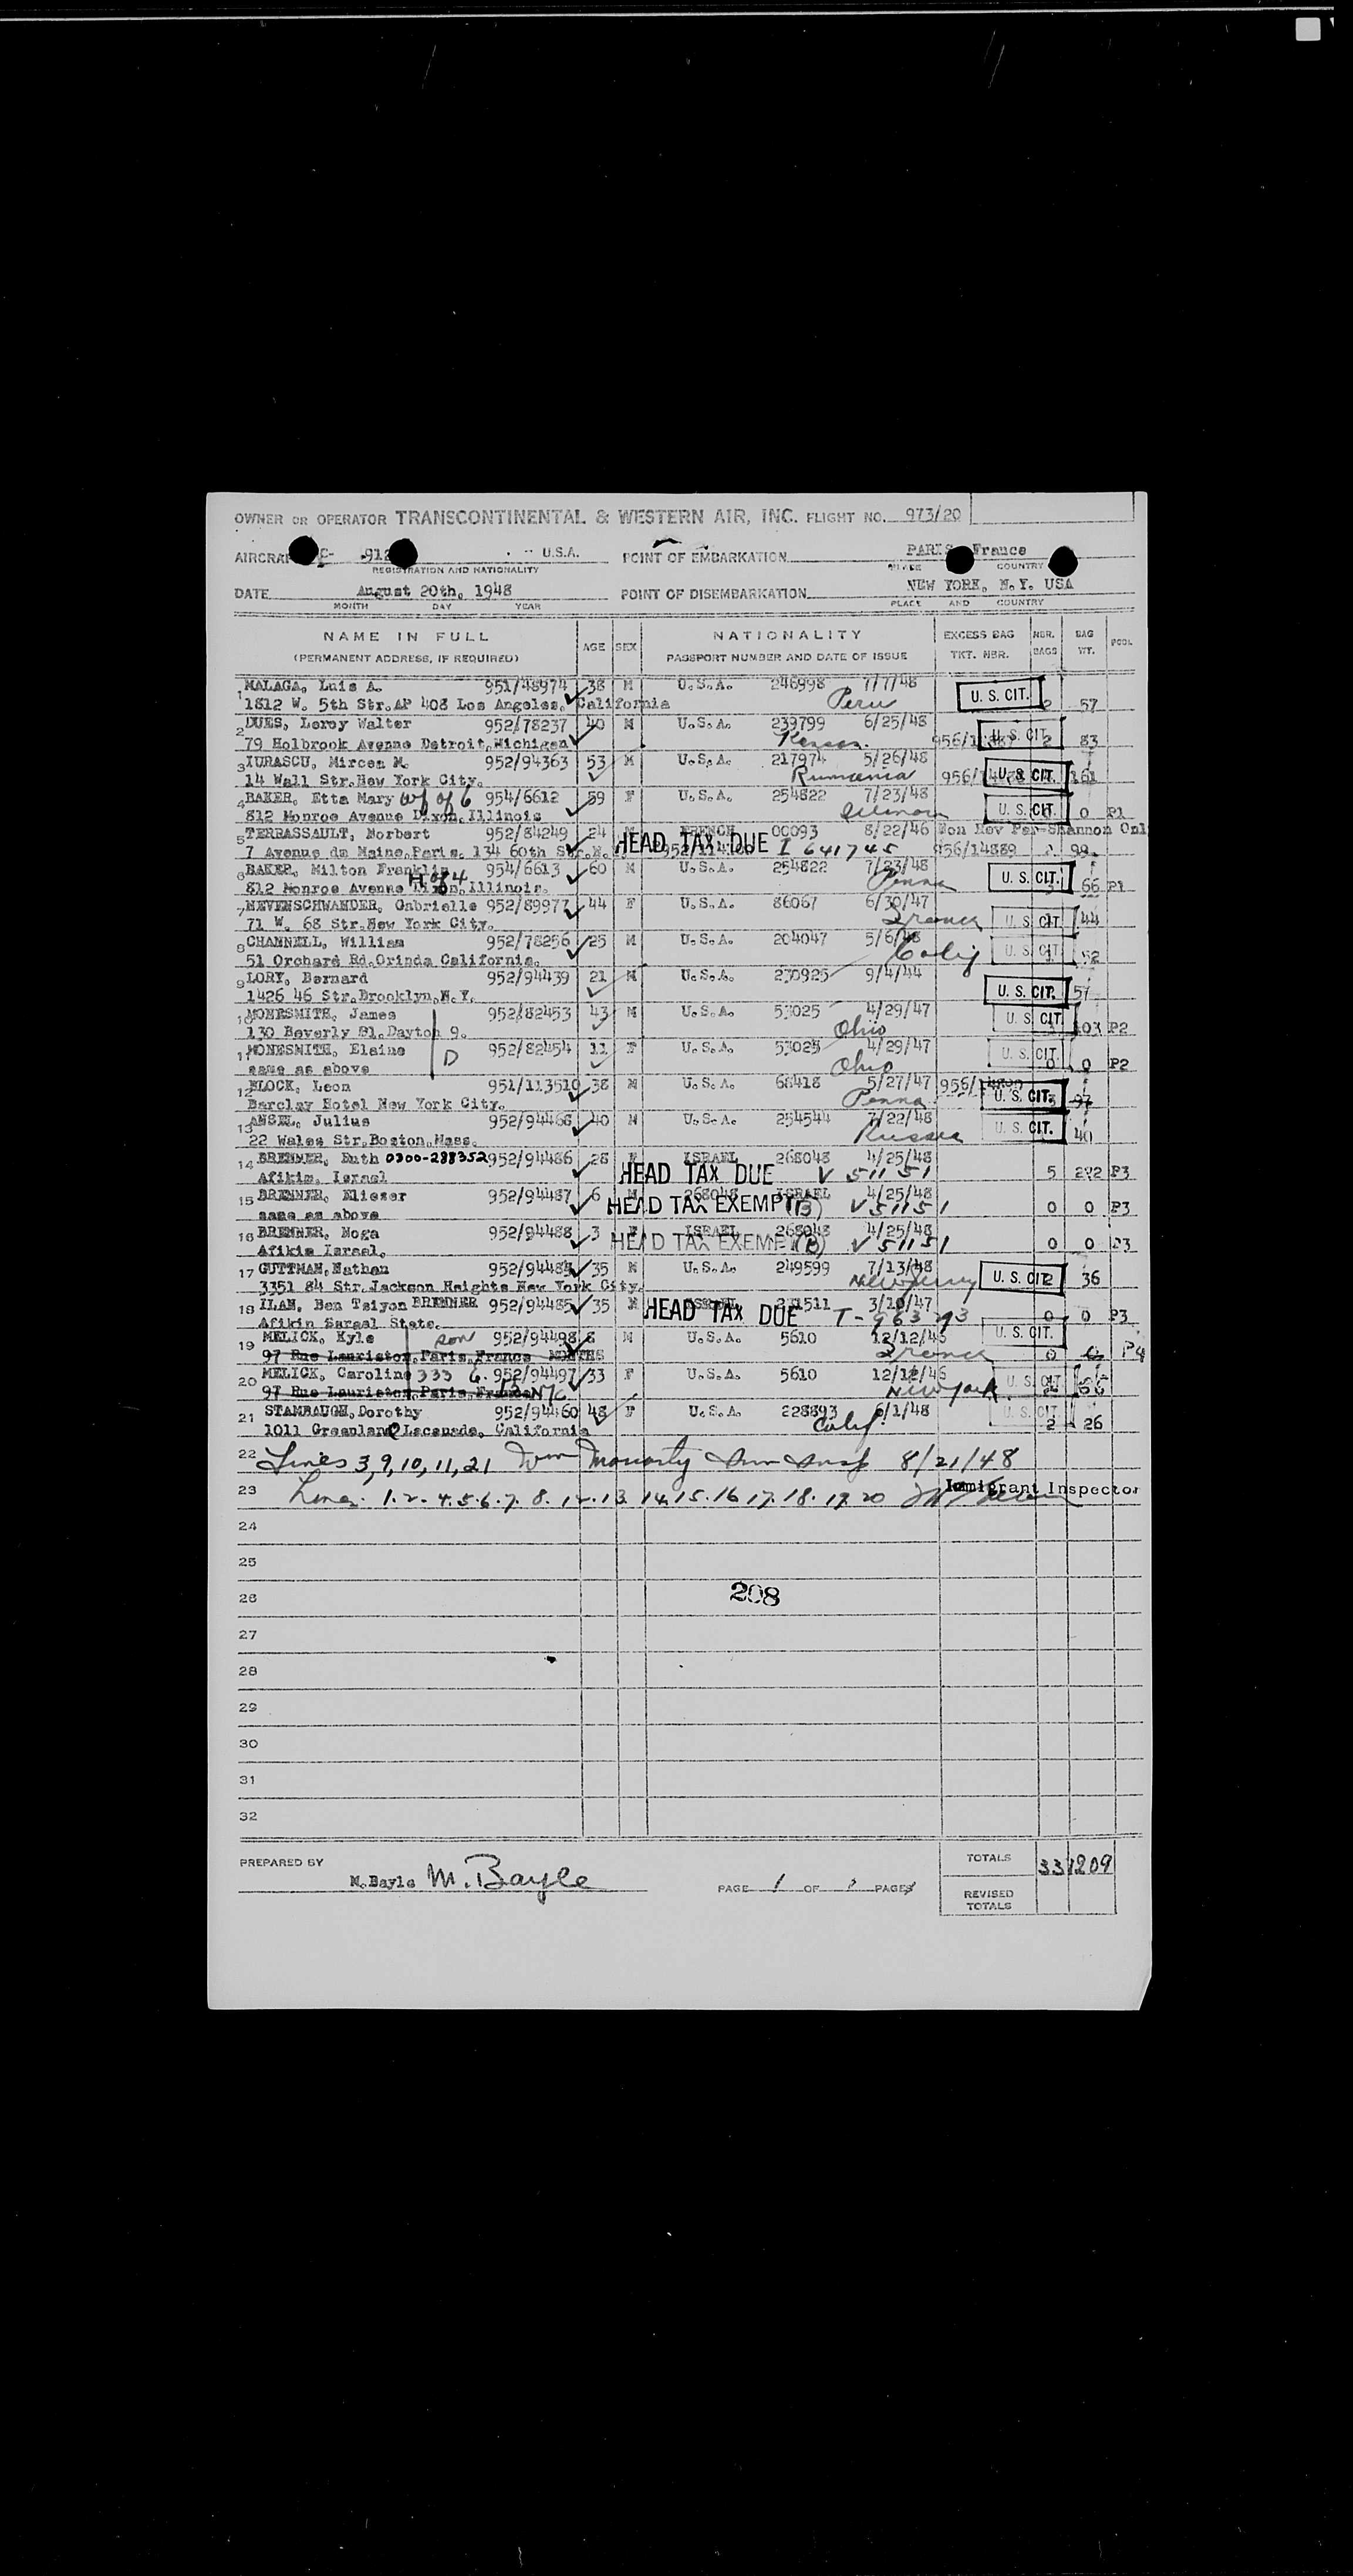 OWNER OR OPERATOR TRANSCONTINENTAL & WESTERN AIR, INC. FLIGHT NO. 973/20
AIRCRAF C- 912 U.S.A. POINT OF EMBARKATION PARIS France
REGISTRATION AND NATIONALITY PLACE COUNTRY
DATE August 20th, 1948 POINT OF DISEMBARKATION NEW YORK, N.Y. USA
MONTH DAY YEAR PLACE AND COUNTRY
NAME IN FULL AGE SEX NATIONALITY EXCESS BAG NBR. BAG POOL
(PERMANENT ADDRESS, IF REQUIRED) PASSPORT NUMBER AND DATE OF ISSUE TKT. NBR. BAGS WT.
1 MALAGA, Luis A. 951/48974 38 M U.S.A. 246998 7/7/48 U. S. CIT.
1812 W. 5th Str.AP 408 Los Angeles, California Peru 2 57
2 DUES, Leroy Walter 952/78237 40 M U.S.A. 239799 6/25/48 U. S. CIT.
79 Holbrook Avenue Detroit,Michigan Kansas 2 83
3 IURASCU, Mircea M. 952/94363 53 M U.S.A. 217974 5/26/48
14 Wall Str.New York City. Rumania U. S. CIT. 161
4 BAKER, Etta Mary wf of 6 954/6612 59 F U.S.A. 254822 7/23/48
812 Monroe Avenue Dixon,Illinois Illinois U. S. CIT. 0 P1
5 TERRASSAULT, Norbert 952/84249 24 FRENCH 00093 8/22/46 Non Rev Par-Shannon Onl
7 Avenue du Maine,Paris. 134 60th Str. HEAD TAX DUE I 641745 956/14889 99
6 BAKER, Milton Franklin 954/6613 60 M U.S.A. 254822 7/23/48 U. S. CIT.
812 Monroe Avenue Dixon,Illinois. H of 4 Penna 66 P1
7 NEVENSCHWANDER, Gabrielle 952/89977 44 F U.S.A. 86067 6/30/47
71 W. 68 Str.New York City. France U. S. CIT. 44
8 CHANNELL, William 952/78256 25 M U.S.A. 204047 5/6/48
51 Orchard Rd.Orinda California. Calif U. S. CIT. 52
9 LORY, Bernard 952/94439 21 M U.S.A. 230925 9/4/44
1426 46 Str.Brooklyn,N.Y. U. S. CIT. 57
10 MONESMITH, James 952/82453 43 M U.S.A. 53025 4/29/47 U. S. CIT.
130 Beverly Pl.Dayton 9. Ohio 103 P2
11 MONESMITH, Elaine D 952/82454 11 F U.S.A. 53025 4/29/47 U. S. CIT.
same as above Ohio 0 0 P2
12 BLOCK, Leon 951/113510 38 M U.S.A. 68418 5/27/47
Barclay Hotel New York City. Penna U. S. CIT. 3 97
13 ANSEL, Julius 952/94468 40 M U.S.A. 254544 7/22/48
22 Wales Str.Boston,Mass. Russia U. S. CIT. 40
14 BRENNER, Ruth 0300-288352 952/94486 28 F ISRAEL 268048 4/25/48
Afikim, Israel HEAD TAX DUE V 51151 5 222 P3
15 BRENNER, Elieser 952/94487 6 M 268048 ISRAEL 4/25/48
same as above HEAD TAX EXEMPT (B) V 51151 0 0 P3
16 BRENNER, Noga 952/94488 3 F ISRAEL 268048 4/25/48
Afikim Israel. HEAD TAX EXEMPT (B) V 51151 0 0 P3
17 GUTTMAN,Nathan 952/94484 35 M U.S.A. 249599 7/13/48
3351 84 Str.Jackson Heights New York City. New Jersey U. S. CIT. 2 36
18 ILAN, Ben Tsiyon BRENNER 952/94485 35 M 3/10/47
Afikin Israel State. HEAD TAX DUE T-96393 0 0 P3
19 MELICK, Kyle son 952/94498 8 M U.S.A. 5610 12/12/46 U. S. CIT.
97 Rue Lauriston,Paris,France MONTHS France 0 P4
20 MELICK, Caroline 333 952/94497 33 F U.S.A. 5610 12/12/46 U. S. CIT.
97 Rue Lauriston,Paris,France NYC New York
21 STAMBAUGH,Dorothy 952/94460 48 F U.S.A. 228893 6/1/48 U. S. CIT.
1011 Greenland Lacanada, California Calif. 2 26
22 Lines 3,9,10,11,21 Wm Moriarty Imm Insp 8/21/48
23 Lines 1.2.4.5.6.7.8.12.13.14.15.16.17.18.19.20 Immigrant Inspector
24
25
26 208
27
28
29
30
31
32
PREPARED BY TOTALS 33 1209
N.Bayle M. Bayle PAGE 1 OF PAGES
REVISED
TOTALS